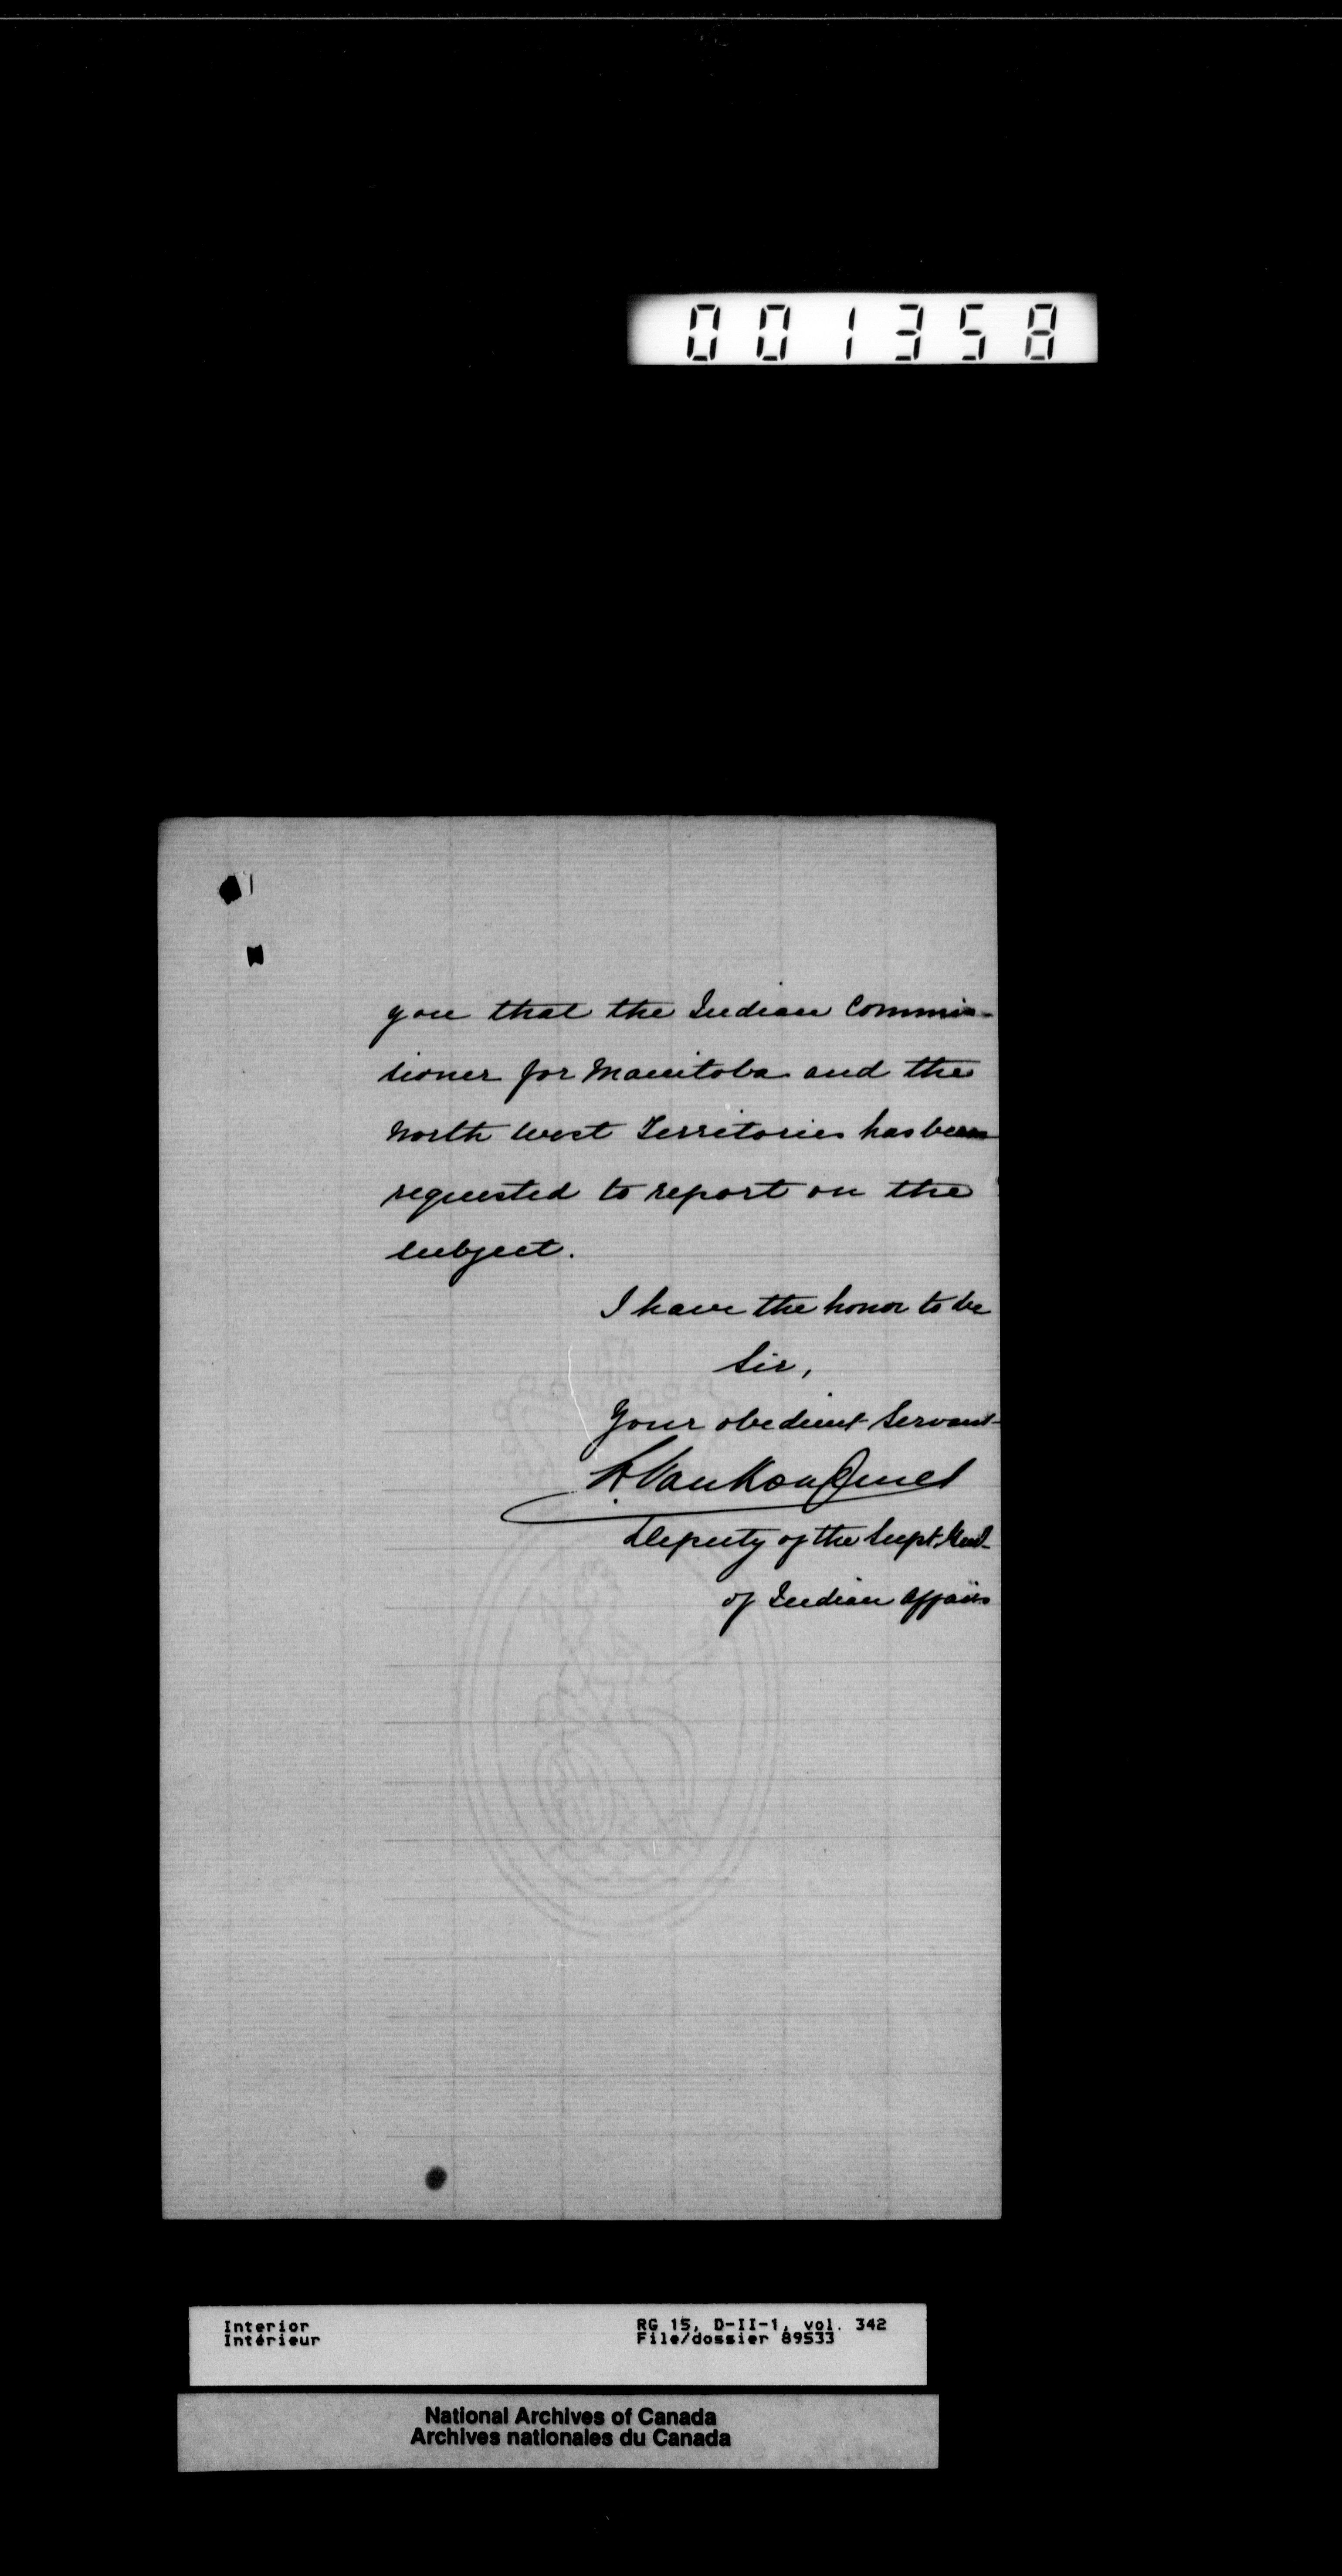 001358
you that the Indian Commis-
sioner for Manitoba and the
North West Territories has been
requested to report on the
subject.
I have the honor to be
Sir,
Your obedient Servant
L. VanKoughnet
Deputy of the Supt. Genl.
of Indian Affairs
Interior RG 15, D-II-1, vol. 342
Intérieur File/dossier 89533
National Archives of Canada
Archives nationales du Canada